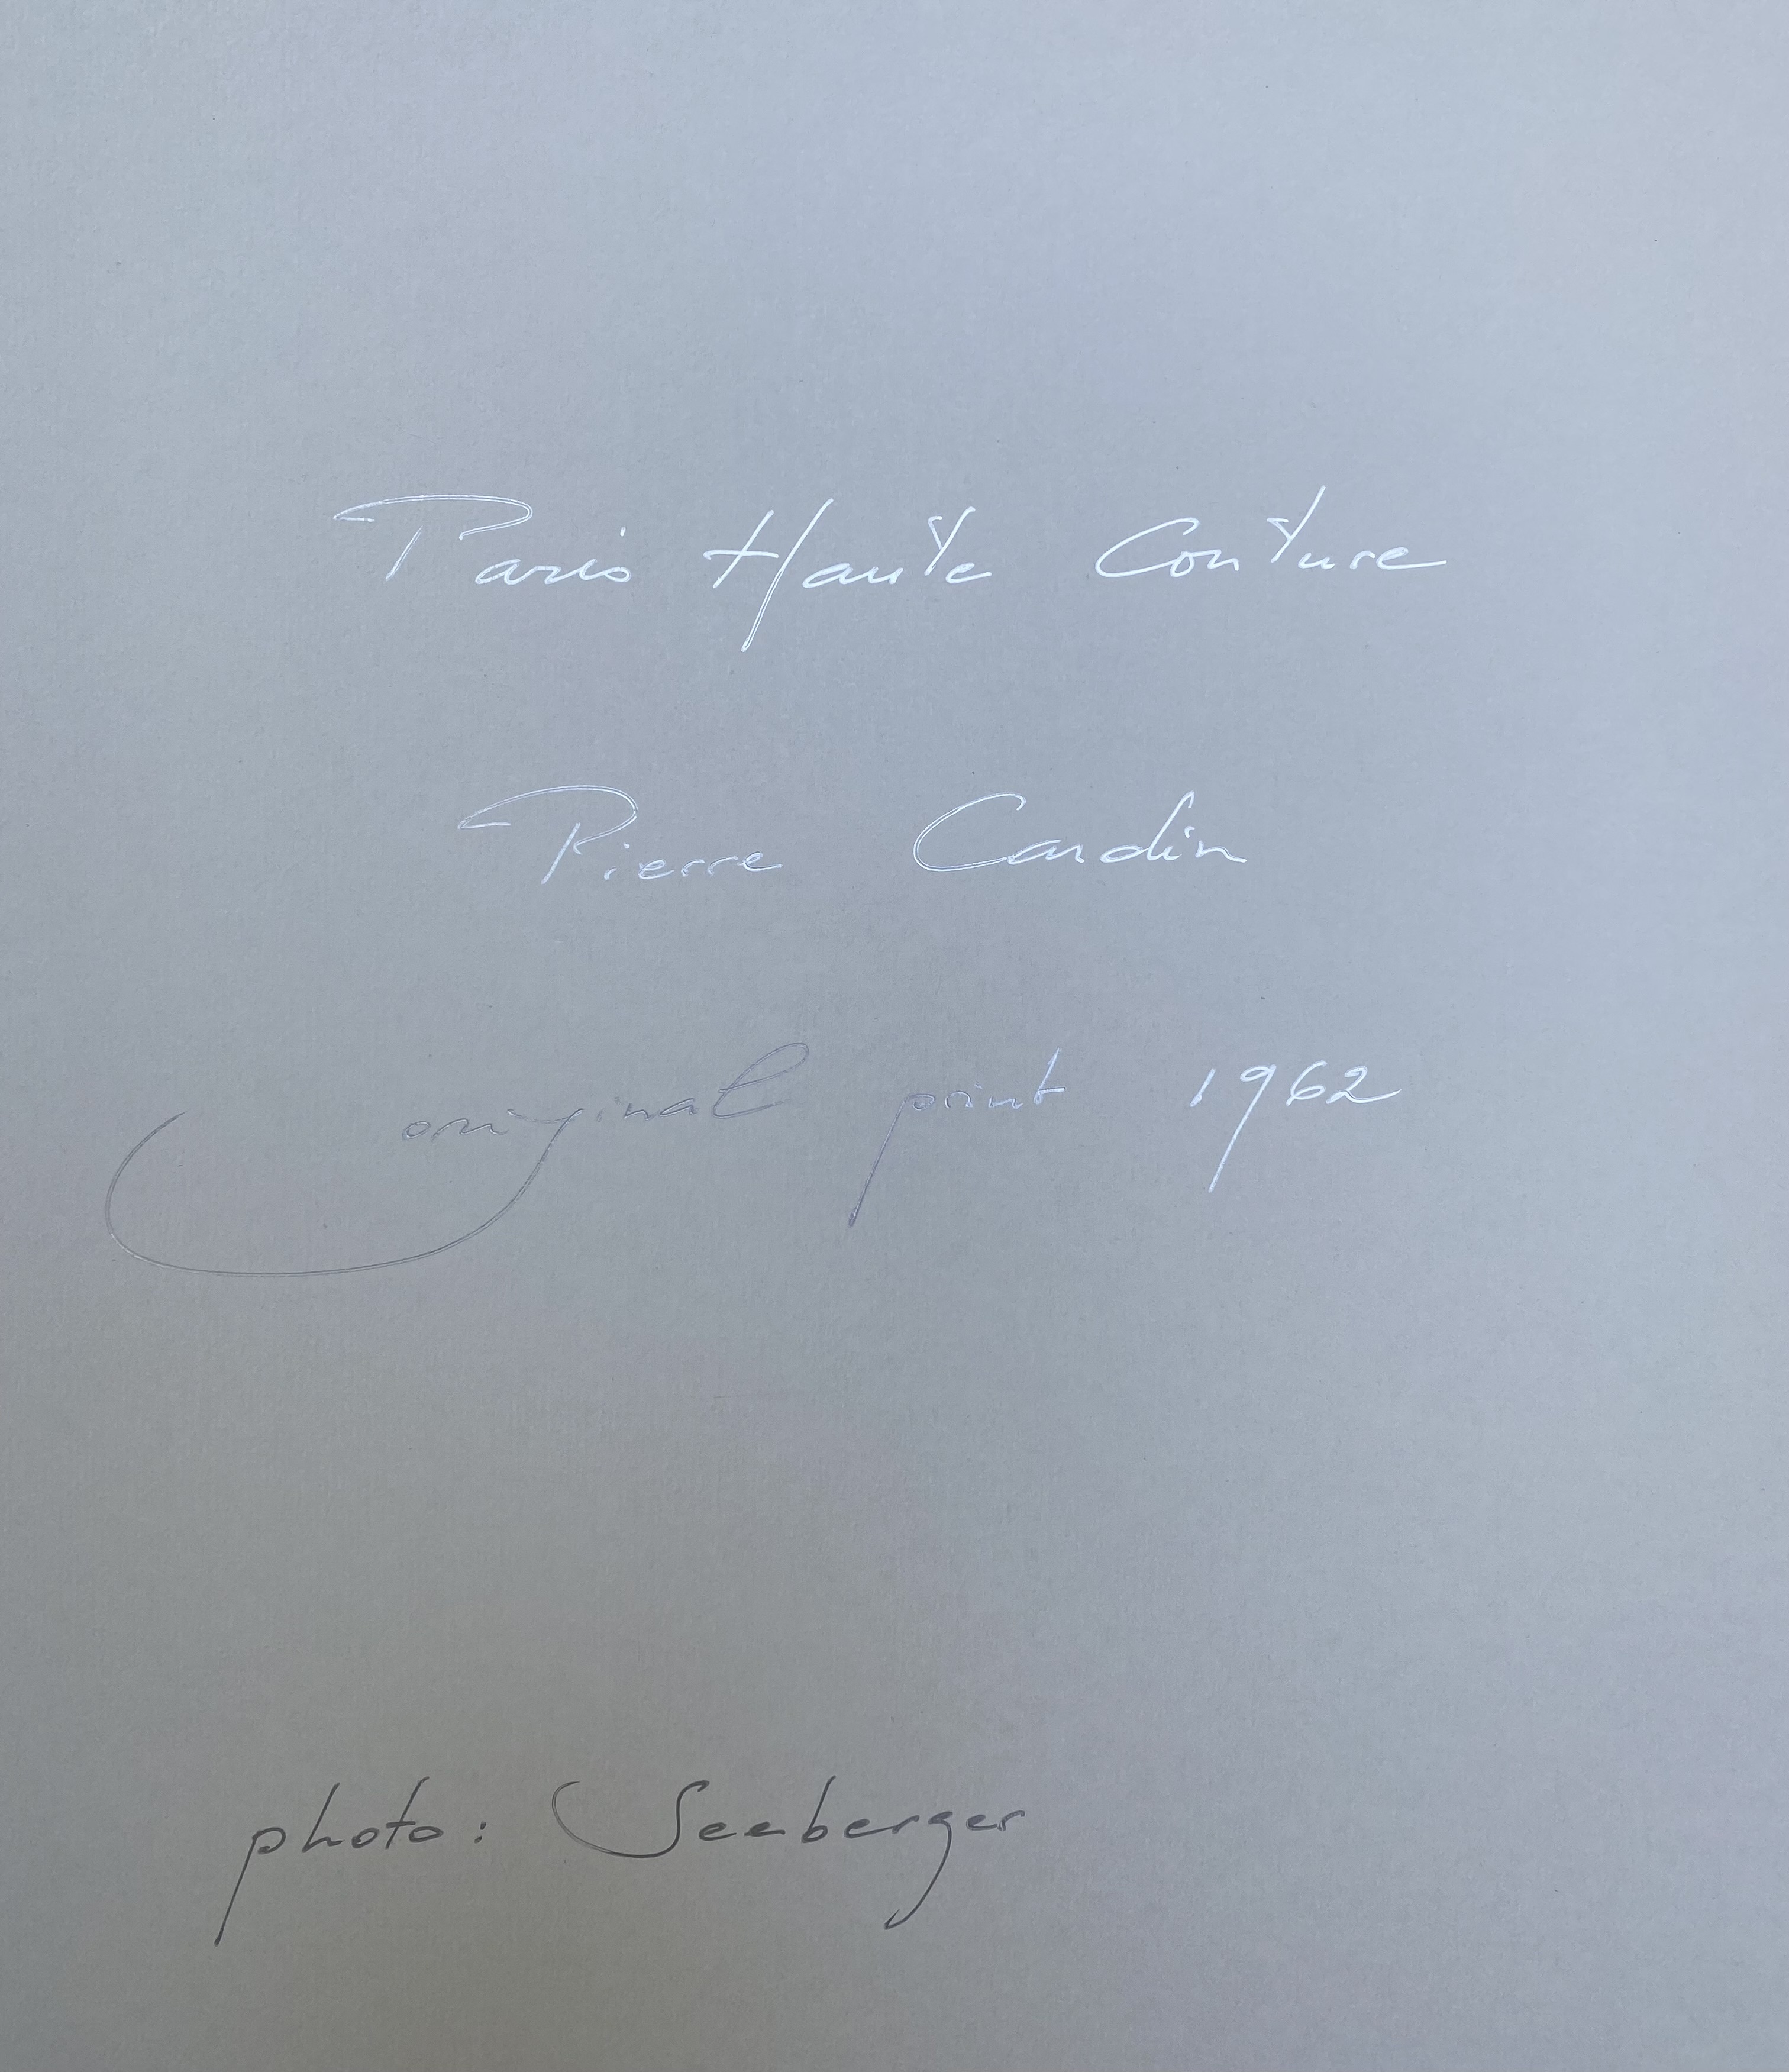 Paris Haute Couture
Pierre Cardin
original print 1962
photo: Seeberger